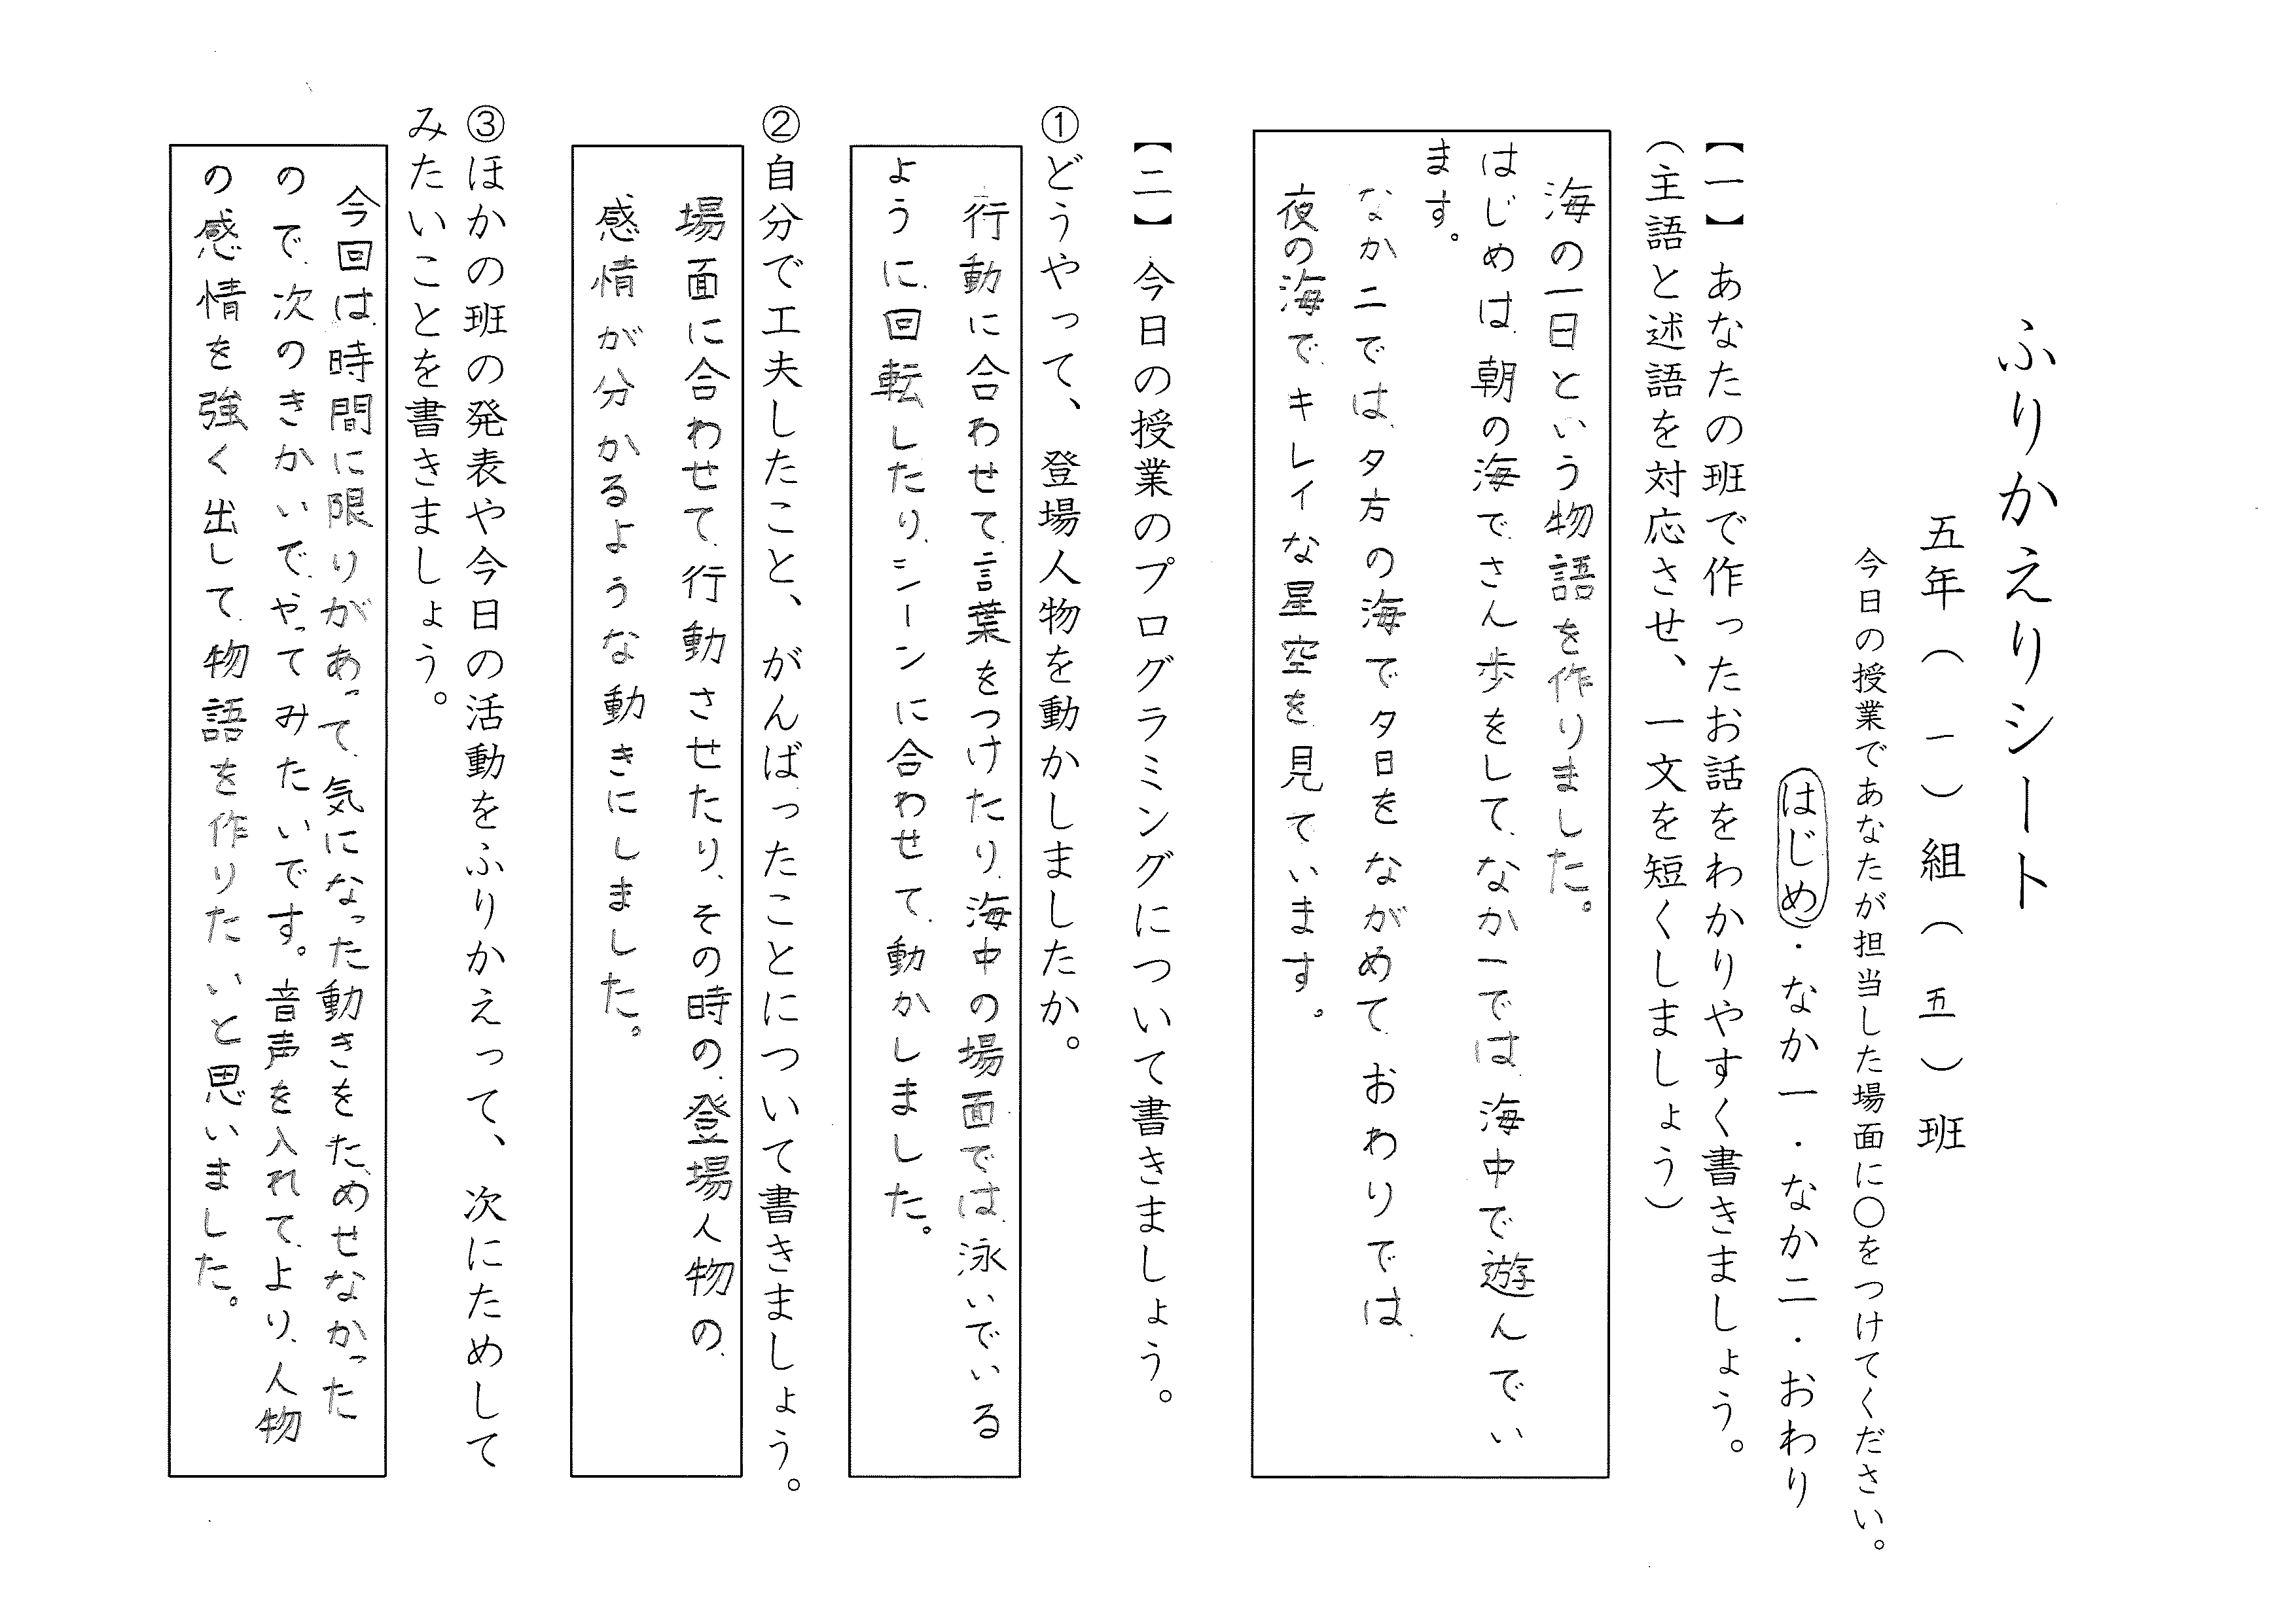 ふりかえりシート
五年（一）組（五）班
今日の授業であなたが担当した場面に〇をつけてください。
はじめ・なか一・なか二・おわり
【一】あなたの班で作ったお話をわかりやすく書きましょう。
（主語と述語を対応させ、一文を短くしましょう）
海の一日という物語を作りました。
はじめは、朝の海でさん歩をして、なか一では、海中で遊んでい
ます。
なか二では、夕方の海で夕日をながめて、おわりでは、
夜の海で、キレイな星空を見ています。
【二】今日の授業のプログラミングについて書きましょう。
①どうやって、登場人物を動かしましたか。
行動に合わせて、言葉をつけたり、海中の場面では、泳いでいる
ように、回転したり、シーンに合わせて、動かしました。
②自分で工夫したこと、がんばったことについて書きましょう。
場面に合わせて、行動させたり、その時の、登場人物の、
感情が分かるような動きにしました。
③ほかの班の発表や今日の活動をふりかえって、次にためして
みたいことを書きましょう。
今回は、時間に限りがあって、気になった動きをた、めせなかった
ので、次のきかいで、やってみたいです。音声を入れて、より、人物
の感情を強く出して、物語を作りたいと思いました。